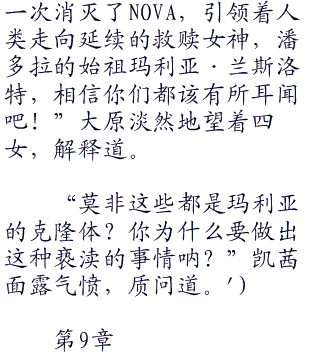 一次消灭了NOVA，引领着人
类走向延续的救赎女神，潘
多拉的始祖玛利亚·兰斯洛
特，相信你们都该有所耳闻
吧！”大原淡然地望着四
女，解释道。
“莫非这些都是玛利亚
的克隆体？你为什么要做出
这种亵渎的事情呐？”凯茜
面露气愤，质问道。')
第9章